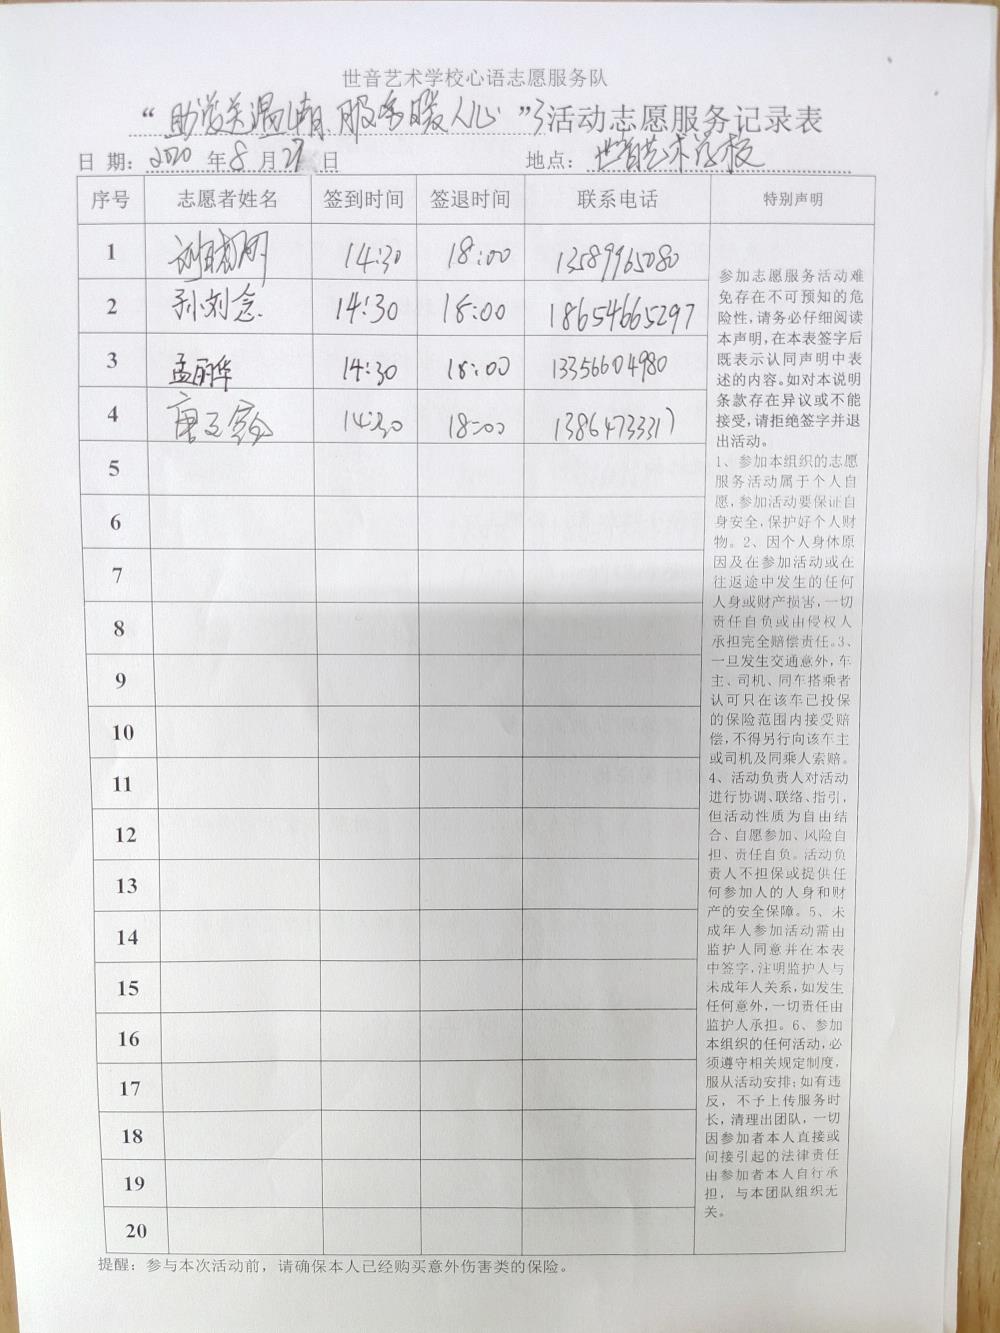 世音艺术学校心语志愿服务队
“ 服务暖人心 ”活动志愿服务记录表
日 期: 2020 年 8 月 27 日 地点: 世音艺术学校
序号 志愿者姓名 签到时间 签退时间 联系电话 特别声明
1 14:30 18:00 13589965080
2 孙刘念 14:30 18:00 18654665297
3 孟丽华 14:30 18:00 13356604980
4 唐 14:30 18:00 13864733317
5
6
7
8
9
10
11
12
13
14
15
16
17
18
19
20
参加志愿服务活动难
免存在不可预知的危
险性,请务必仔细阅读
本声明,在本表签字后
既表示认同声明中表
述的内容。如对本说明
条款存在异议或不能
接受,请拒绝签字并退
出活动。
1、参加本组织的志愿
服务活动属于个人自
愿,参加活动要保证自
身安全,保护好个人财
物。2、因个人身休原
因及在参加活动或在
往返途中发生的任何
人身或财产损害,一切
责任自负或由侵权人
承担完全赔偿责任。3、
一旦发生交通意外,车
主、司机、同车搭乘者
认可只在该车已投保
的保险范围内接受赔
偿,不得另行向该车主
或司机及同乘人索赔。
4、活动负责人对活动
进行协调、联络、指引,
但活动性质为自由结
合、自愿参加、风险自
担、责任自负。活动负
责人不担保或提供任
何参加人的人身和财
产的安全保障。5、未
成年人参加活动需由
监护人同意并在本表
中签字,注明监护人与
未成年人关系,如发生
任何意外,一切责任由
监护人承担。6、参加
本组织的任何活动,必
须遵守相关规定制度,
服从活动安排;如有违
反,不予上传服务时
长,清理出团队,一切
因参加者本人直接或
间接引起的法律责任
由参加者本人自行承
担,与本团队组织无
关。
提醒:参与本次活动前,请确保本人已经购买意外伤害类的保险。